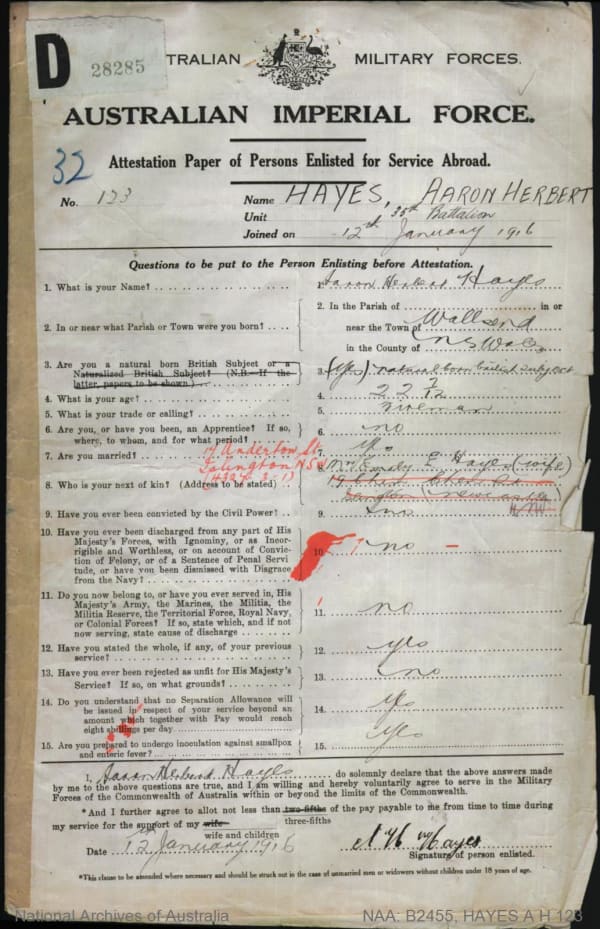 D
28285
TRALIAN MILITARY FORCES.
AUSTRALIAN IMPERIAL FORCE.
32
Attestation Paper of Persons Enlisted for Service Abroad.
No. 123 Name HAYES, AARON HERBERT
Unit 35th Battalion
Joined on 12th January 1916
Questions to be put to the Person Enlisting before Attestation.
1. What is your Name? 1. Aaron Herbert Hayes
2. In or near what Parish or Town were you born? 2. In the Parish of in or
near the Town of Wallsend
in the County of NSWales
3. Are you a natural born British Subject or a
Naturalized British Subject? (N.B.—If the
latter, papers to be shown.) 3. (Yes) natural born British Subject
4. What is your age? 4. 22 7/12
5. What is your trade or calling? 5.
6. Are you, or have you been, an Apprentice? If so,
where, to whom, and for what period? 6. no
7. Are you married? 7. yes
17 Anderton St
Islington NSW
8. Who is your next of kin? (Address to be stated) 8. Mrs E Hayes (wife)
9. Have you ever been convicted by the Civil Power? 9. no
10. Have you ever been discharged from any part of His
Majesty's Forces, with Ignominy, or as Incor-
rigible and Worthless, or on account of Convic-
tion of Felony, or of a Sentence of Penal Servi-
tude, or have you been dismissed with Disgrace
from the Navy? 10. no
11. Do you now belong to, or have you ever served in, His
Majesty's Army, the Marines, the Militia, the
Militia Reserve, the Territorial Force, Royal Navy,
or Colonial Forces? If so, state which, and if not
now serving, state cause of discharge 11. no
12. Have you stated the whole, if any, of your previous
service? 12. yes
13. Have you ever been rejected as unfit for His Majesty's
Service? If so, on what grounds? 13. no
14. Do you understand that no Separation Allowance will
be issued in respect of your service beyond an
amount which together with Pay would reach
eight shillings per day 14. yes
15. Are you prepared to undergo inoculation against smallpox
and enteric fever? 15. Yes
I, Aaron Herbert Hayes do solemnly declare that the above answers made
by me to the above questions are true, and I am willing and hereby voluntarily agree to serve in the Military
Forces of the Commonwealth of Australia within or beyond the limits of the Commonwealth.
*And I further agree to allot not less than two-fifths of the pay payable to me from time to time during
three-fifths
my service for the support of my wife
wife and children
Date 12 January 1916 A H Hayes
Signature of person enlisted.
*This clause to be amended where necessary and should be struck out in the case of unmarried men or widowers without children under 18 years of age.
National Archives of Australia NAA: B2455, HAYES A H 123